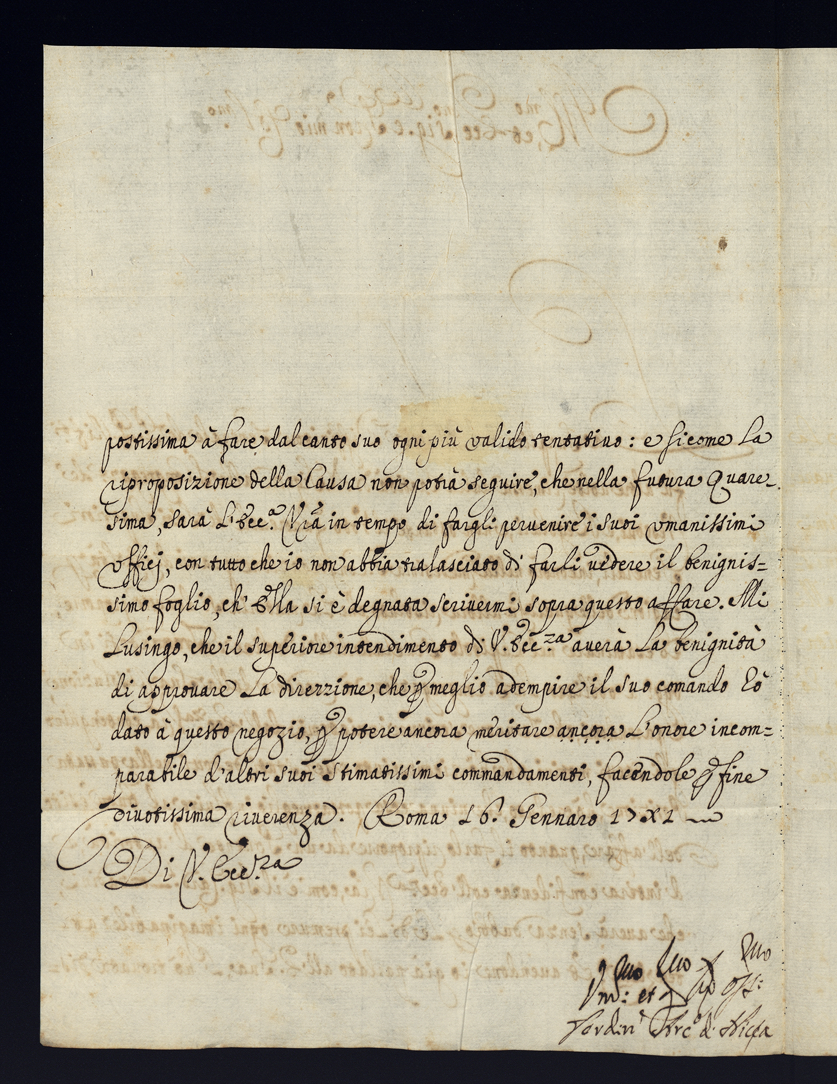 postissima à fare dal canto suo ogni più valido tentatiuo : e sicome La
riproposizione della Causa non potrà seguire, che nella futura Quare=
sima, sarà L'Ecc.ª Vrã in tempo di fargli pervenire i suoi umanissimi
vfficj, con tutto che io non abbia tralasciato di farli vedere il benignis=
simo foglio, ch' Ella si è degnata scriuermi sopra questo affare. Mi
Lusingo, che il superiore intendimento di V. Ecc.za auerà La benignità
di approuare La direzzione, che ꝑ meglio adempire il suo comando Eò
dato à questo negozio, ꝑ potere ancora meritare ancora L'onore incom=
parabile d'altri suoi stimatissimi commandamenti, facendole ꝑ fine
diuotissima riuerenza. Roma 16. Gennaro 1721
Di V. Ecc.za
et